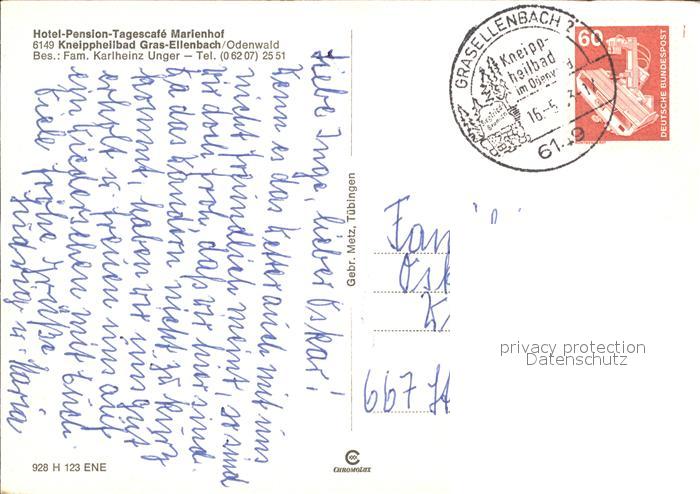 Hotel-Pension-Tagescafé Marienhof
6149 Kneippheilbad Gras-Ellenbach/Odenwald
Bes.: Fam. Karlheinz Unger — Tel. (0 62 07) 25 51
Liebe Inge, lieber Oskar!
Wenn es das Wetter auch mit uns
nicht freundlich meint, so sind
wir doch froh, daß wir hier sind.
Da das Wandern nicht zu kurz
kommt, haben wir uns gut
erholt u. freuen uns auf
ein Wiedersehen mit Euch.
Viele frohe Grüße
u. Maria
Gebr. Metz, Tübingen
GRASELLENBACH 2
Kneipp-
heilbad
im Odenwald
16.-5.
6149
60
DEUTSCHE BUNDESPOST
Fam
Osk
K
667 St
privacy protection
Datenschutz
928 H 123 ENE
CHROMOLUX